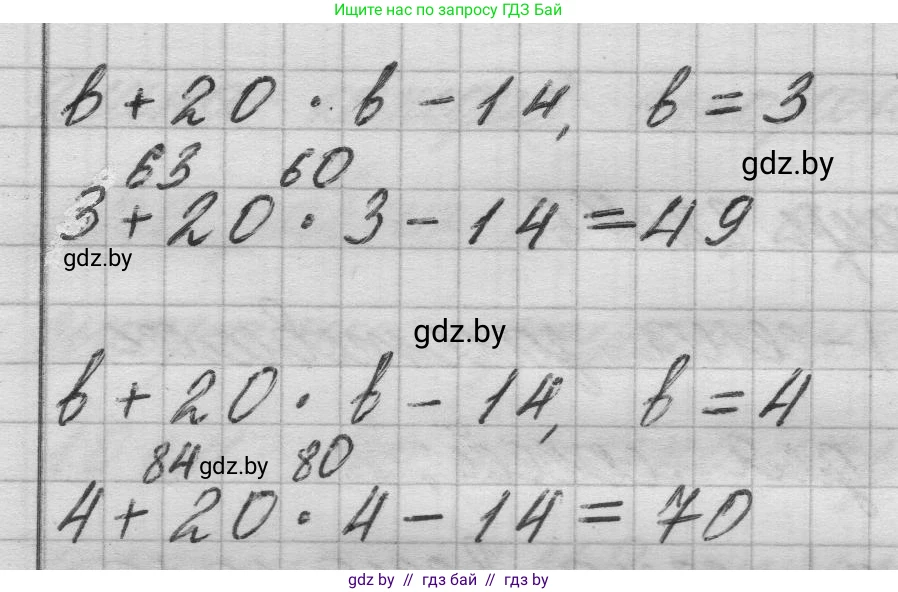 Ищите нас по запросу ГДЗ Бай
в + 20 · в - 14, в = 3
gdz.by
63 60
3 + 20 · 3 - 14 = 49
gdz.by
gdz.by
в + 20 · в - 14, в = 4
84 gdz.by 80
4 + 20 · 4 - 14 = 70
gdz by // гдз бай // гдз by